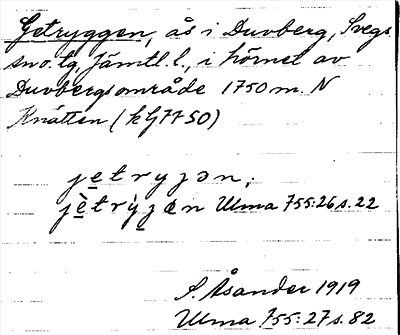 Getryggen, ås i Duvberg, Svegs
sno. lg, Jämtl. l., i hörnet av
Duvbergsområde 1750 m. N
Knätten (k G7750)
jetryjən;
jètrỳʒən Ulma 755:26 s. 22
S. Åsander 1919
Ulma 755:27 s. 82